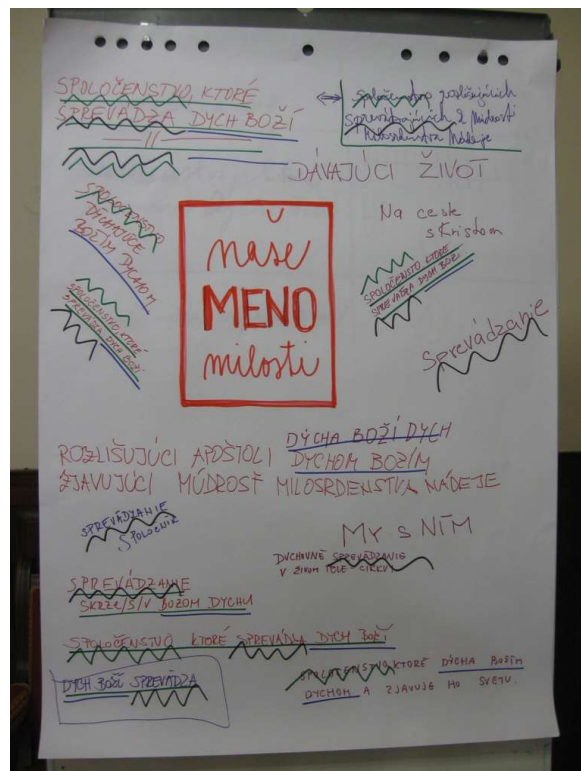 SPOLOČENSTVO, KTORÉ
SPREVÁDZA DYCH BOŽÍ
spoločenstvo rozlišujúcich
sprevádzajúcich z múdrosti
milosrdenstva nádeje
DÁVAJÚCI ŽIVOT
SPOLOČENSTVO
DÝCHAJÚCE
BOŽÍM DYCHOM
naše
MENO
milosti
Na ceste
s Kristom
SPOLOČENSTVO KTORÉ
SPREVÁDZA DYCH BOŽÍ
SPOLOČENSTVO, KTORÉ
SPREVÁDZA DYCH BOŽÍ
Sprevádzanie
DÝCHA BOŽÍ DYCH
ROZLIŠUJÚCI APOŠTOLI DYCHOM BOŽÍM
ZJAVUJÚCI MÚDROSŤ MILOSRDENSTVA NÁDEJE
SPREVÁDZANIE
MY S NÍM
DUCHOVNÉ SPREVÁDZANIE
V ŽIVOM TELE CIRKVI
SPREVÁDZANIE
SKRZE/S/V BOŽOM DYCHU
SPOLOČENSTVO KTORÉ SPREVÁDZA DYCH BOŽÍ
DYCH BOŽÍ SPREVÁDZA
SPOLOČENSTVO KTORÉ DÝCHA BOŽÍM
DYCHOM A ZJAVUJE HO SVETU.